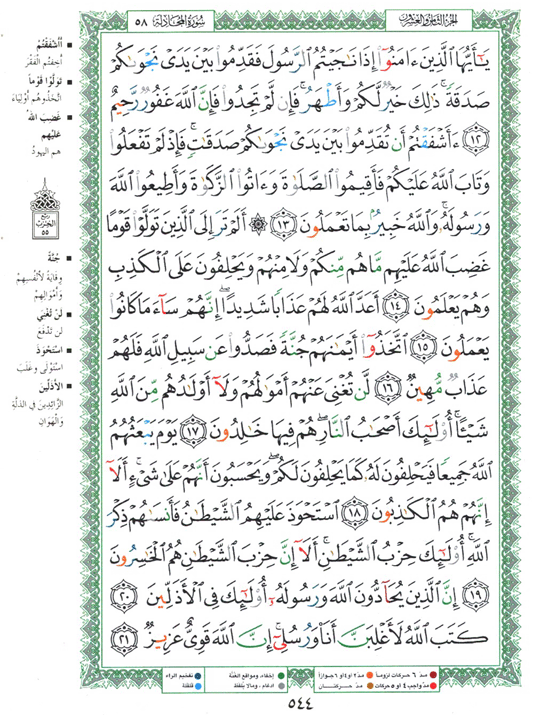 الجزء الثامن والعشرون
سورة المجادلة ٥٨
يَٰٓأَيُّهَا ٱلَّذِينَ ءَامَنُوٓا۟ إِذَا نَٰجَيْتُمُ ٱلرَّسُولَ فَقَدِّمُوا۟ بَيْنَ يَدَىْ نَجْوَىٰكُمْ
صَدَقَةً ۚ ذَٰلِكَ خَيْرٌ لَّكُمْ وَأَطْهَرُ ۚ فَإِن لَّمْ تَجِدُوا۟ فَإِنَّ ٱللَّهَ غَفُورٌ رَّحِيمٌ
١٢ ءَأَشْفَقْتُمْ أَن تُقَدِّمُوا۟ بَيْنَ يَدَىْ نَجْوَىٰكُمْ صَدَقَٰتٍ ۚ فَإِذْ لَمْ تَفْعَلُوا۟
وَتَابَ ٱللَّهُ عَلَيْكُمْ فَأَقِيمُوا۟ ٱلصَّلَوٰةَ وَءَاتُوا۟ ٱلزَّكَوٰةَ وَأَطِيعُوا۟ ٱللَّهَ
وَرَسُولَهُۥ ۚ وَٱللَّهُ خَبِيرٌۢ بِمَا تَعْمَلُونَ ١٣ ۞ أَلَمْ تَرَ إِلَى ٱلَّذِينَ تَوَلَّوْا۟ قَوْمًا
غَضِبَ ٱللَّهُ عَلَيْهِم مَّا هُم مِّنكُمْ وَلَا مِنْهُمْ وَيَحْلِفُونَ عَلَى ٱلْكَذِبِ
وَهُمْ يَعْلَمُونَ ١٤ أَعَدَّ ٱللَّهُ لَهُمْ عَذَابًا شَدِيدًا ۖ إِنَّهُمْ سَآءَ مَا كَانُوا۟
يَعْمَلُونَ ١٥ ٱتَّخَذُوٓا۟ أَيْمَٰنَهُمْ جُنَّةً فَصَدُّوا۟ عَن سَبِيلِ ٱللَّهِ فَلَهُمْ
عَذَابٌ مُّهِينٌ ١٦ لَّن تُغْنِىَ عَنْهُمْ أَمْوَٰلُهُمْ وَلَآ أَوْلَٰدُهُم مِّنَ ٱللَّهِ
شَيْـًٔا ۚ أُو۟لَٰٓئِكَ أَصْحَٰبُ ٱلنَّارِ ۖ هُمْ فِيهَا خَٰلِدُونَ ١٧ يَوْمَ يَبْعَثُهُمُ
ٱللَّهُ جَمِيعًا فَيَحْلِفُونَ لَهُۥ كَمَا يَحْلِفُونَ لَكُمْ ۖ وَيَحْسَبُونَ أَنَّهُمْ عَلَىٰ شَىْءٍ ۚ أَلَآ
إِنَّهُمْ هُمُ ٱلْكَٰذِبُونَ ١٨ ٱسْتَحْوَذَ عَلَيْهِمُ ٱلشَّيْطَٰنُ فَأَنسَىٰهُمْ ذِكْرَ
ٱللَّهِ ۚ أُو۟لَٰٓئِكَ حِزْبُ ٱلشَّيْطَٰنِ ۚ أَلَآ إِنَّ حِزْبَ ٱلشَّيْطَٰنِ هُمُ ٱلْخَٰسِرُونَ
١٩ إِنَّ ٱلَّذِينَ يُحَآدُّونَ ٱللَّهَ وَرَسُولَهُۥٓ أُو۟لَٰٓئِكَ فِى ٱلْأَذَلِّينَ ٢٠
كَتَبَ ٱللَّهُ لَأَغْلِبَنَّ أَنَا۠ وَرُسُلِىٓ ۚ إِنَّ ٱللَّهَ قَوِىٌّ عَزِيزٌ ٢١
■ أَأَشْفَقْتُمْ
أَخِفْتُمُ الْفَقْرَ
■ تَوَلَّوْا قَوْمًا
اتَّخَذُوهُمْ أَوْلِيَاءَ
■ غَضِبَ اللهُ
عَلَيْهِمْ
هُمُ الْيَهُودُ
ربع
الحزب
٥٥
■ جُنَّةً
وِقَايَةً لأَنْفُسِهِمْ
وَأَمْوَالِهِمْ
■ لَنْ تُغْنِيَ
لَنْ تَدْفَعَ
■ اسْتَحْوَذَ
اسْتَوْلَى وغَلَبَ
■ الأَذَلِّينَ
الزَّائِدِينَ فِي الذِّلَّةِ
وَالْهَوَانِ
مدّ ٦ حركات لزوماً ● مدّ ٢ أو ٤ أو ٦ جوازاً ● إخفاء، ومواقع الغُنَّة ● تفخيم الراء
مدّ واجب ٤ أو ٥ حركات ● مدّ حركتان ● إدغام، وما لا يُلفظ ● قلقلة
٥٤٤